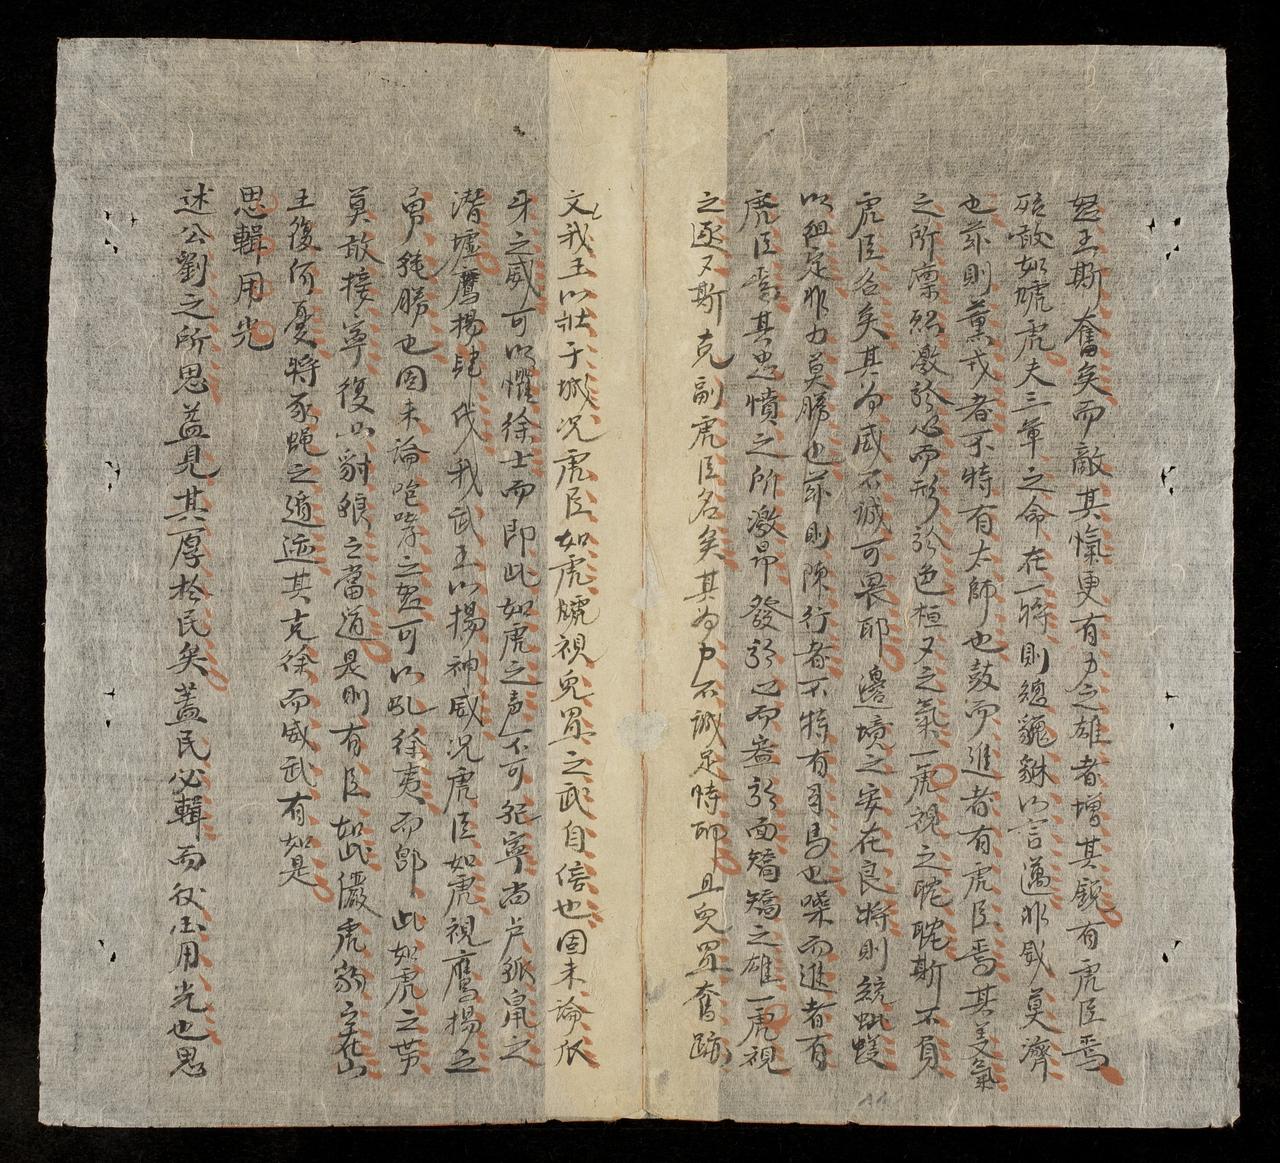 怒王斯奮矣而敵其愾更有力之雄者增其銳有虎臣焉
殆敵如虓虎夫三軍之命在一將則總貔貅以言邁非威莫濟
也茲則薰戎者不特有太師也鼓而進者有虎臣焉其美氣
之所凜烈激於心而形於色桓又之氣一虎視之眈眈斯不負
虎臣名矣其為威不誠可畏耶邊境之安在良將則統蚍蜉
以組定非力莫勝也茲則陳行者不特有司馬也噪而進者有
虎臣焉其忠憤之所激昂發於心而盎於面矯矯之雄一虎視
之逐又斯克副虎臣名矣其為力不誠足恃耶且兔罝奮跡
文我王以壯于城況虎臣如虎虓視兔罝之武自倍也固未論爪
牙之威可以懼徐士而即此如虎之声不可絕寧尚戶狐鼠之
潛墟鷹揚肆伐我武王以揚神威況虎臣如虎視鷹揚之
勇能勝也固未論咆哮之怒可以乱徐夷而即此如虎之葉
莫敢接寧復以豺狼之當道是則有臣如此儼虎豹之在山
王復何憂將豕蜴之遁迹其克徐而威武有如是
思輯用光
述公劉之所思益見其厚於民矣蓋民必輯而後国用光也思